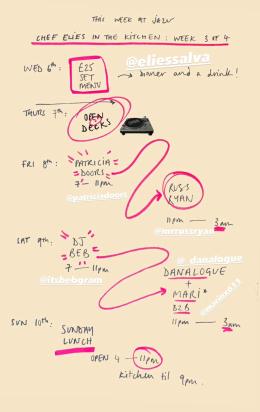 THIS WEEK AT JAZU
CHEF ELIES IN THE KITCHEN : WEEK 3 of 4
@eliessalva
WED 6th: £25 SET MENU → banger and a drink!
THURS 7th: OPEN DECKS
FRI 8th: PATRICIA DOORS
7 — 11pm
@patriciadoors
RUSS RYAN
@mrrussryan
11pm — 3am
SAT 9th: DJ BEB
7 — 11pm
@itsbebgram
@_danalogue
DANALOGUE
+
MARI*
B2B
11pm — 3am
SUN 10th: SUNDAY LUNCH
OPEN 4 — 11pm
Kitchen til 9pm.